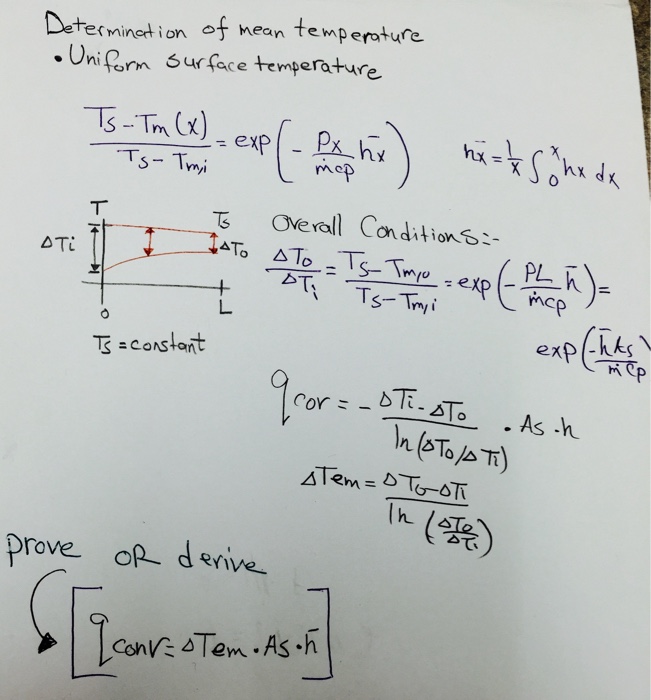 Determination of mean temperature
• Uniform surface temperature
Ts - Tm(x) / Ts - Tm,i = exp(- Px / ṁcp h̄x)
h̄x = 1/x ∫₀ˣ hx dx
T
Ts
ΔTi
ΔTo
0
L
Ts = constant
Overall Conditions:-
ΔTo / ΔTi = Ts - Tm,o / Ts - Tm,i = exp(- PL / ṁcp h̄) =
exp(- h̄As / ṁcp)
qcor = - ΔTi - ΔTo / ln(ΔTo/ΔTi) . As . h
ΔTem = ΔTo - ΔTi / ln(ΔTo / ΔTi)
prove OR derive
[qconv = ΔTem . As . h̄]